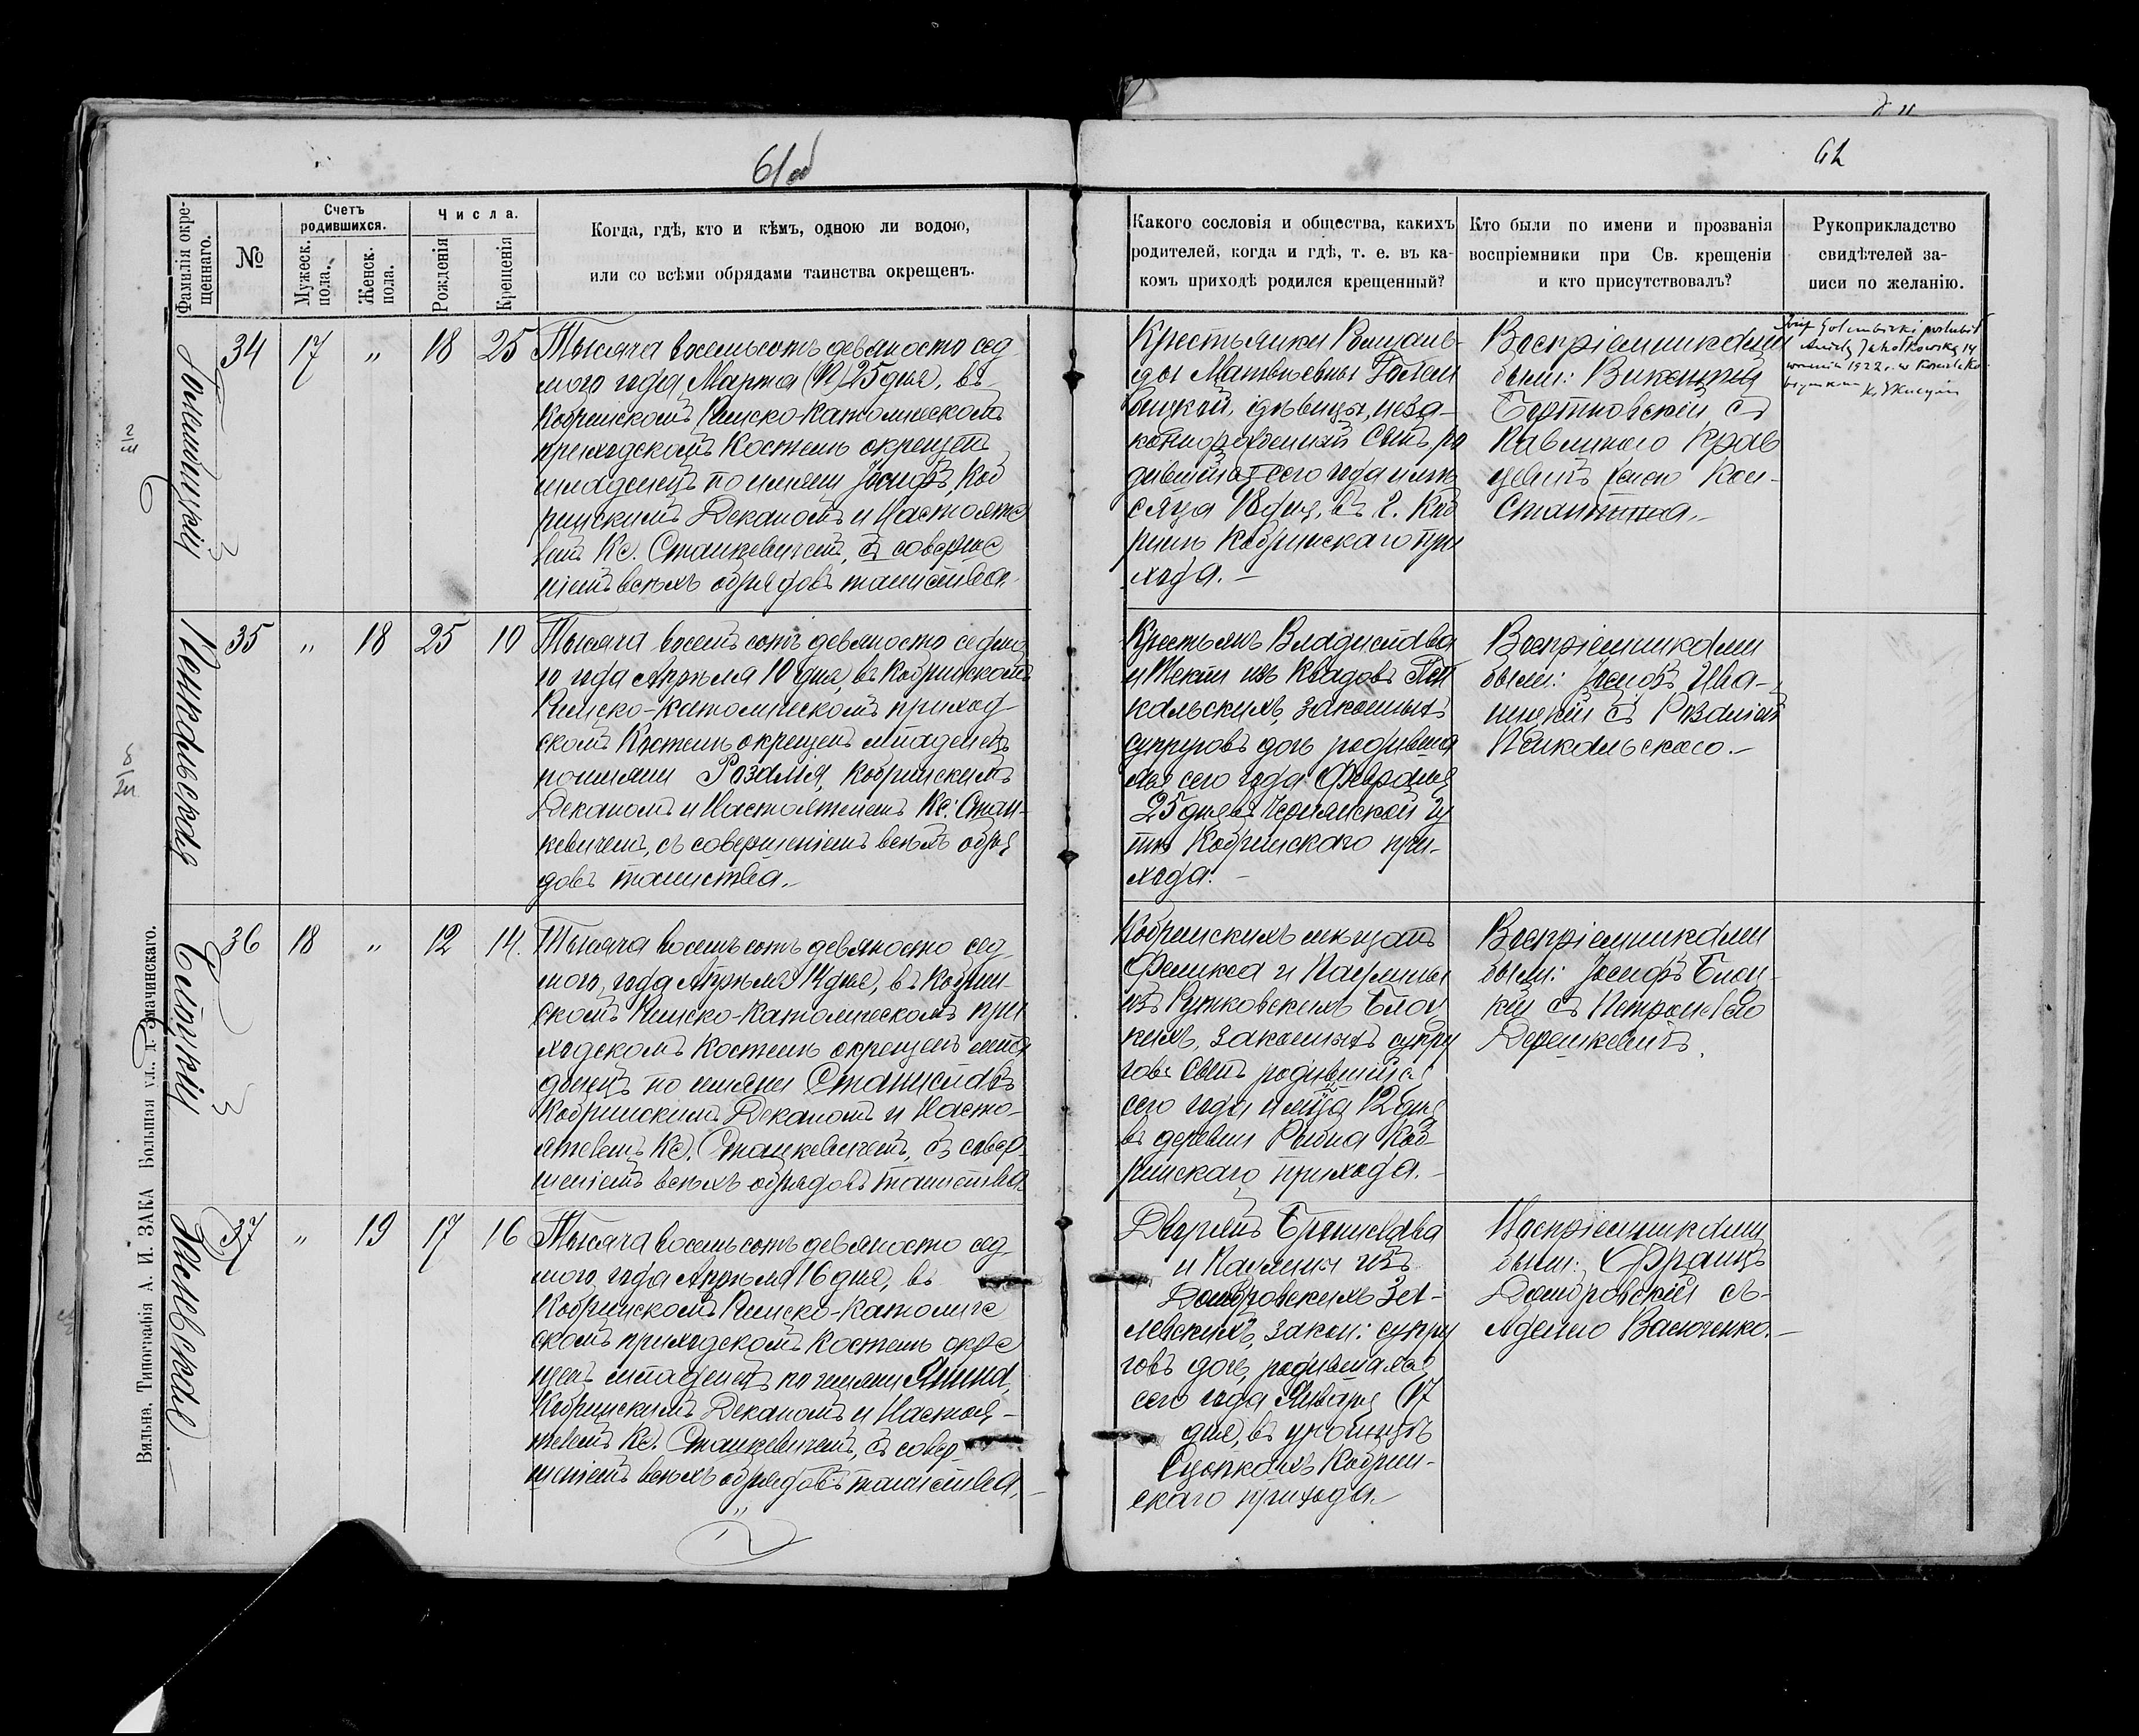 61об
62
Фамилія окре-
щеннаго.
№
Счетъ
родившихся.
Мужеск.
пола.
Женск.
пола.
Числа.
Рожденія
Крещенія
Когда, гдѣ, кто и кѣмъ, одною ли водою,
или со всѣми обрядами таинства окрещенъ.
Какого сословія и общества, какихъ
родителей, когда и гдѣ, т. е. въ ка-
комъ приходѣ родился крещенный?
Кто были по имени и прозванія
воспріемники при Св. крещеніи
и кто присутствовалъ?
Рукоприкладство
свидѣтелей за-
писи по желанію.
Голембицкій
34 17 „ 18 25
Тысяча восемьсотъ девяносто сед
мого года Марта 25 дня, въ
Кобринскомъ Римско-Католическомъ
приходскомъ Костелѣ окрещенъ
младенецъ по имени Іосифъ, Коб
ринскимъ Деканомъ и Настояте
лемъ Кс. Станкевичемъ, съ соверше
ніемъ всѣхъ обрядовъ таинства.
Крестьянки
ды Матвѣевны Голем
бицкой, дѣвицы, неза-
коннорожденный сынъ, ро
дившійся сего года и мѣ
сяца 18 дня, въ г. Коб
ринѣ Кобринскаго при
хода. –
Воспріемниками
были: Викентій
съ
Павлиною
женою Кон-
стантина.–
Józef Gołembicki poślubił
14
1922 r. w Kościele Ko-
bryńskim
Пенкальская
35 „ 18 25 10
Тысяча восемьсотъ девяносто седмо
го года Апрѣля 10 дня, въ Кобринскомъ
Римско-Католическомъ приход
скомъ Костелѣ окрещенъ младенецъ
по имени Розалія, Кобринскимъ
Деканомъ и Настоятелемъ Кс. Стан-
кевичемъ, съ совершеніемъ всѣхъ обря
довъ таинства.–
Крестьянъ Владислава
и Теклі изъ Квадовъ Пен
кальскихъ, законныхъ
супруговъ дочь, родивша
яся сего года Февраля
25 дня въ Чернянской Гу
тѣ Кобринскаго при-
хода. –
Воспріемниками
были: Іосифъ Ива-
ницкій съ Розаліею
Пенкальскою.–
Блоцкій
36 18 „ 12 14.
Тысяча восемьсотъ девяносто сед
мого, года Апрѣля 14 дня, въ Кобрин-
скомъ Римско-Католическомъ при
ходскомъ Костелѣ окрещенъ мла
денецъ по имени Станиславъ
Кобринскимъ Деканомъ и Насто-
ятелемъ Кс. Станкевичемъ, съ совер-
шеніемъ всѣхъ обрядовъ таинства.
Кобринскихъ мѣщанъ
Феликса и Паулины
изъ Рутковскихъ Блоц
кихъ, законныхъ супру
говъ сынъ, родившійся
сего года и мѣсяца 12 дня
въ деревни Рыбна Коб-
ринскаго прихода. –
Воспріемниками
были: Іосифъ Блоц-
кій съ Петронелею
Зелевская
37 „ 19 17 16
Тысяча восемьсотъ девяносто сед
мого, года Апрѣля 16 дня, въ
Кобринскомъ Римско-Католиче
скомъ приходскомъ Костелѣ окре
щенъ младенецъ по имени Янина,
Кобринскимъ Деканомъ и Настоя-
телемъ Кс. Станкевичемъ, съ совер-
шеніемъ всѣхъ обрядовъ таинства. –
Дворянъ Бронислава
и Паулины изъ
Домбровскихъ Зе-
левскихъ, закон: супру
говъ дочь, родившаяся
сего года Января 17
дня, въ урочищѣ
Кобрин-
скаго прихода.–
Воспріемниками
были: Францъ
Домбровскій съ
Аделею Васюченко.–
Вильна. Типографія А. И. ЗАКА Большая ул., д. Змачинскаго.